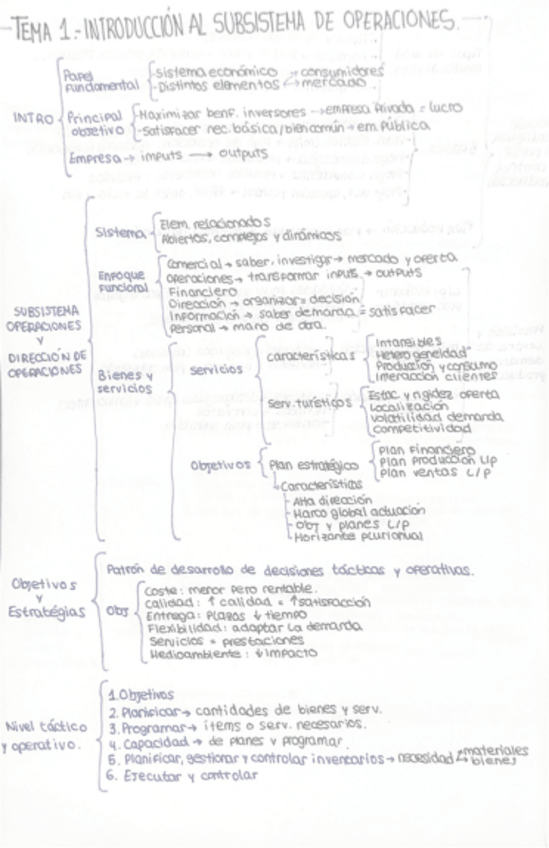 TEMA 1.- INTRODUCCIÓN AL SUBSISTEMA DE OPERACIONES.
INTRO
Papel fundamental
-Sistema económico → consumidores
-Distintos elementos → mercado.
Principal objetivo
-Maximizar benf. inversores → empresa privada = lucro
-Satisfacer nec. básica/bien común → em. pública
Empresa → inputs → outputs
SUBSISTEMA
OPERACIONES
Y
DIRECCIÓN DE
OPERACIONES
Sistema
Elem. relacionados
Abiertos, complejos y dinámicos
Enfoque
Funcional
Comercial → saber, investigar → mercado y oferta
Operaciones → transformar inputs → outputs
Financiero
Dirección → organizar = decisión
Información → saber demanda = satisfacer
Personal → mano de obra.
Bienes y
servicios
Servicios
características
Intangibles
Heterogeneidad
Producción y consumo
Interacción clientes
Serv. turísticos
Estac. y rigidez oferta
Localización
Volatilidad demanda
competitividad
Objetivos
Plan estratégico
Plan Financiero
Plan producción L/p
Plan ventas L/p
Características
-Alta dirección
-Marco global actuación
-Obj y planes L/P
-Horizonte plurianual
Objetivos
Y
Estratégias
Patrón de desarrollo de decisiones tácticas y operativas.
Obj
Coste: menor pero rentable.
calidad: ↑ calidad = ↑ satisfacción
Entrega: Plazos ↓ tiempo
Flexibilidad: adaptar la demanda
Servicios = prestaciones
Medioambiente: ↓ impacto
Nivel táctico
y operativo.
1. Objetivos
2. Planificar → cantidades de bienes y serv.
3. Programar → items o serv. necesarios.
4. Capacidad → de planes y programar.
5. Planificar, gestionar y controlar inventarios → necesidad materiales bienes
6. Ejecutar y controlar